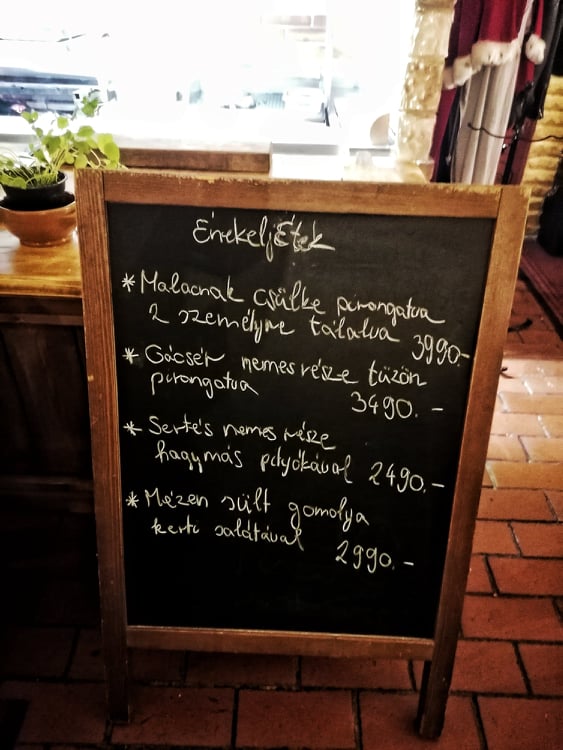 ÉnekeljÉtek
* Malacnak csülke pirongatva
2 személyre tálalva 3990.-
* Gácsér nemes része tűzön
pirongatva
3490.-
* Sertés nemes része
hagymás pityókával 2490.-
* Mézen sült gomolya
kerti salátával
2990.-